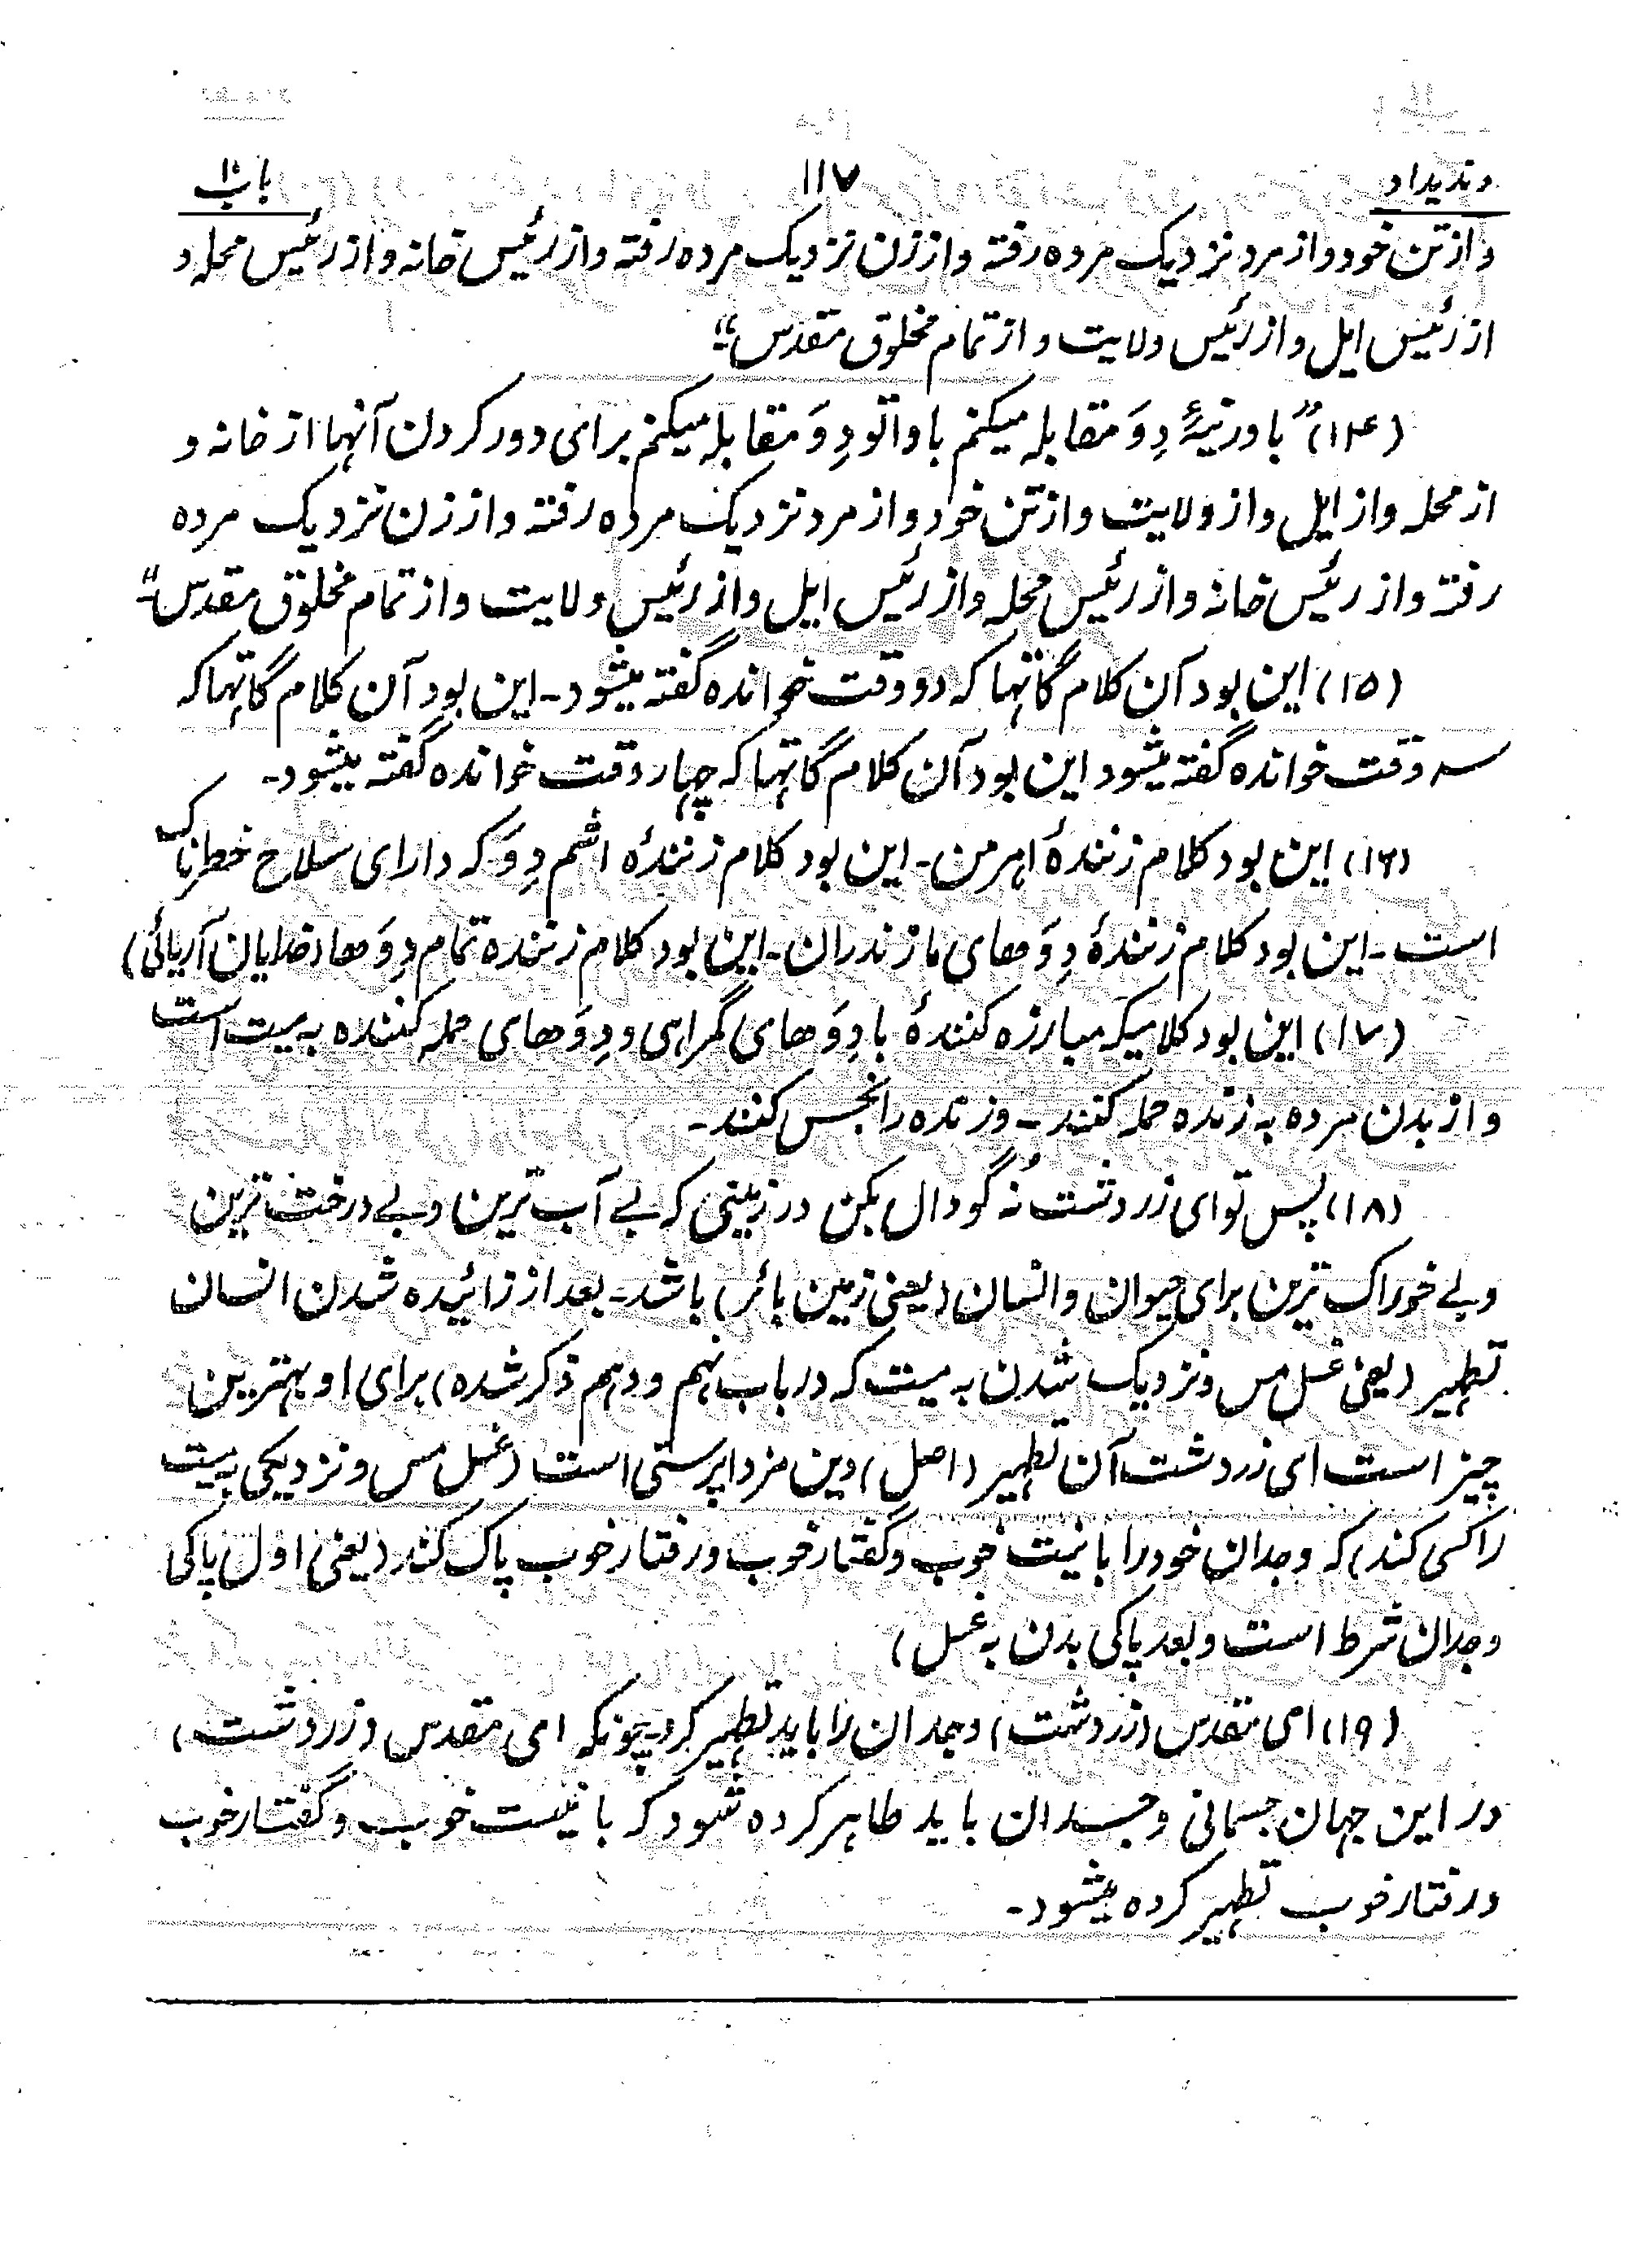 وندیداد
۱۱۷
باب ۱۰
و از تن خود و از مرد نزدیک مرده رفته و از زن نزدیک مرده رفته و از رئیس خانه و از رئیس محله و
از رئیس ایل و از رئیس ولایت و از تمام مخلوق مقدس“
(۱۴) ”با ورنیهٔ دِوَ مقابله میکنم با واتو دِوَ مقابله میکنم برای دور کردن آنها از خانه و
از محله و از ایل و از ولایت و از تن خود و از مرد نزدیک مرده رفته و از زن نزدیک مرده
رفته و از رئیس خانه و از رئیس محله و از رئیس ایل و از رئیس ولایت و از تمام مخلوق مقدس“
(۱۵) این بود آن کلام گاتها که دو وقت خوانده گفته میشود - این بود آن کلام گاتها که
سه وقت خوانده گفته میشود این بود آن کلام گاتها که چهار وقت خوانده گفته میشود -
(۱۶) این بود کلام زنندهٔ اهرمن - این بود کلام زنندهٔ اشم دِوَ که دارای سلاح خطرناک
است - این بود کلام زنندهٔ دِوَهای مازندران - این بود کلام زننده تمام دِوَها (خدایان آریائی)
(۱۷) این بود کلامیکه مبارزه کنندهٔ با دِوَهای گمراهی و دِوَهای حمله کننده به میت است
و از بدن مرده به زنده حمله کنند - و زنده را نجس کنند -
(۱۸) پس تو ای زردشت نُه گودال بکن در زمینی که بے آب ترین و بے درخت ترین
و بے خوراک ترین برای حیوان و انسان (یعنی زمین بائر) باشد - بعد از زائیده شدن انسان
تطهیر (یعنی غسل مس و نزدیک شدن به میت که در باب نهم و دهم ذکر شده) برای او بهترین
چیز است ای زردشت آن تطهیر (اصل) دین مزداپرستی است (غسل مس و نزدیکی بمیت
را کسی کند) که وجدان خود را با نیت خوب و گفتار خوب و رفتار خوب پاک کند (یعنی اول پاکی
وجدان شرط است و بعد پاکی بدن به غسل)
(۱۹) ای مقدس (زردشت) وجدان را باید تطهیر کرد - چونکه ای مقدس (زردشت)
در این جهان جسمانی وجدان باید طاهر کرده شود که با نیت خوب و گفتار خوب
و رفتار خوب تطهیر کرده میشود -